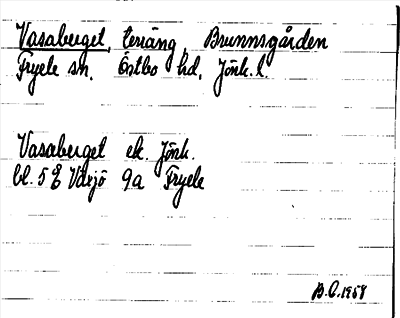 Vasaberget, terräng, Brunnsgården
Fryele sn. Östbo hd. Jönk. l.
Vasaberget ek. Jönk.
bl. 5 E Växjö 9a Fryele
B.O. 1958